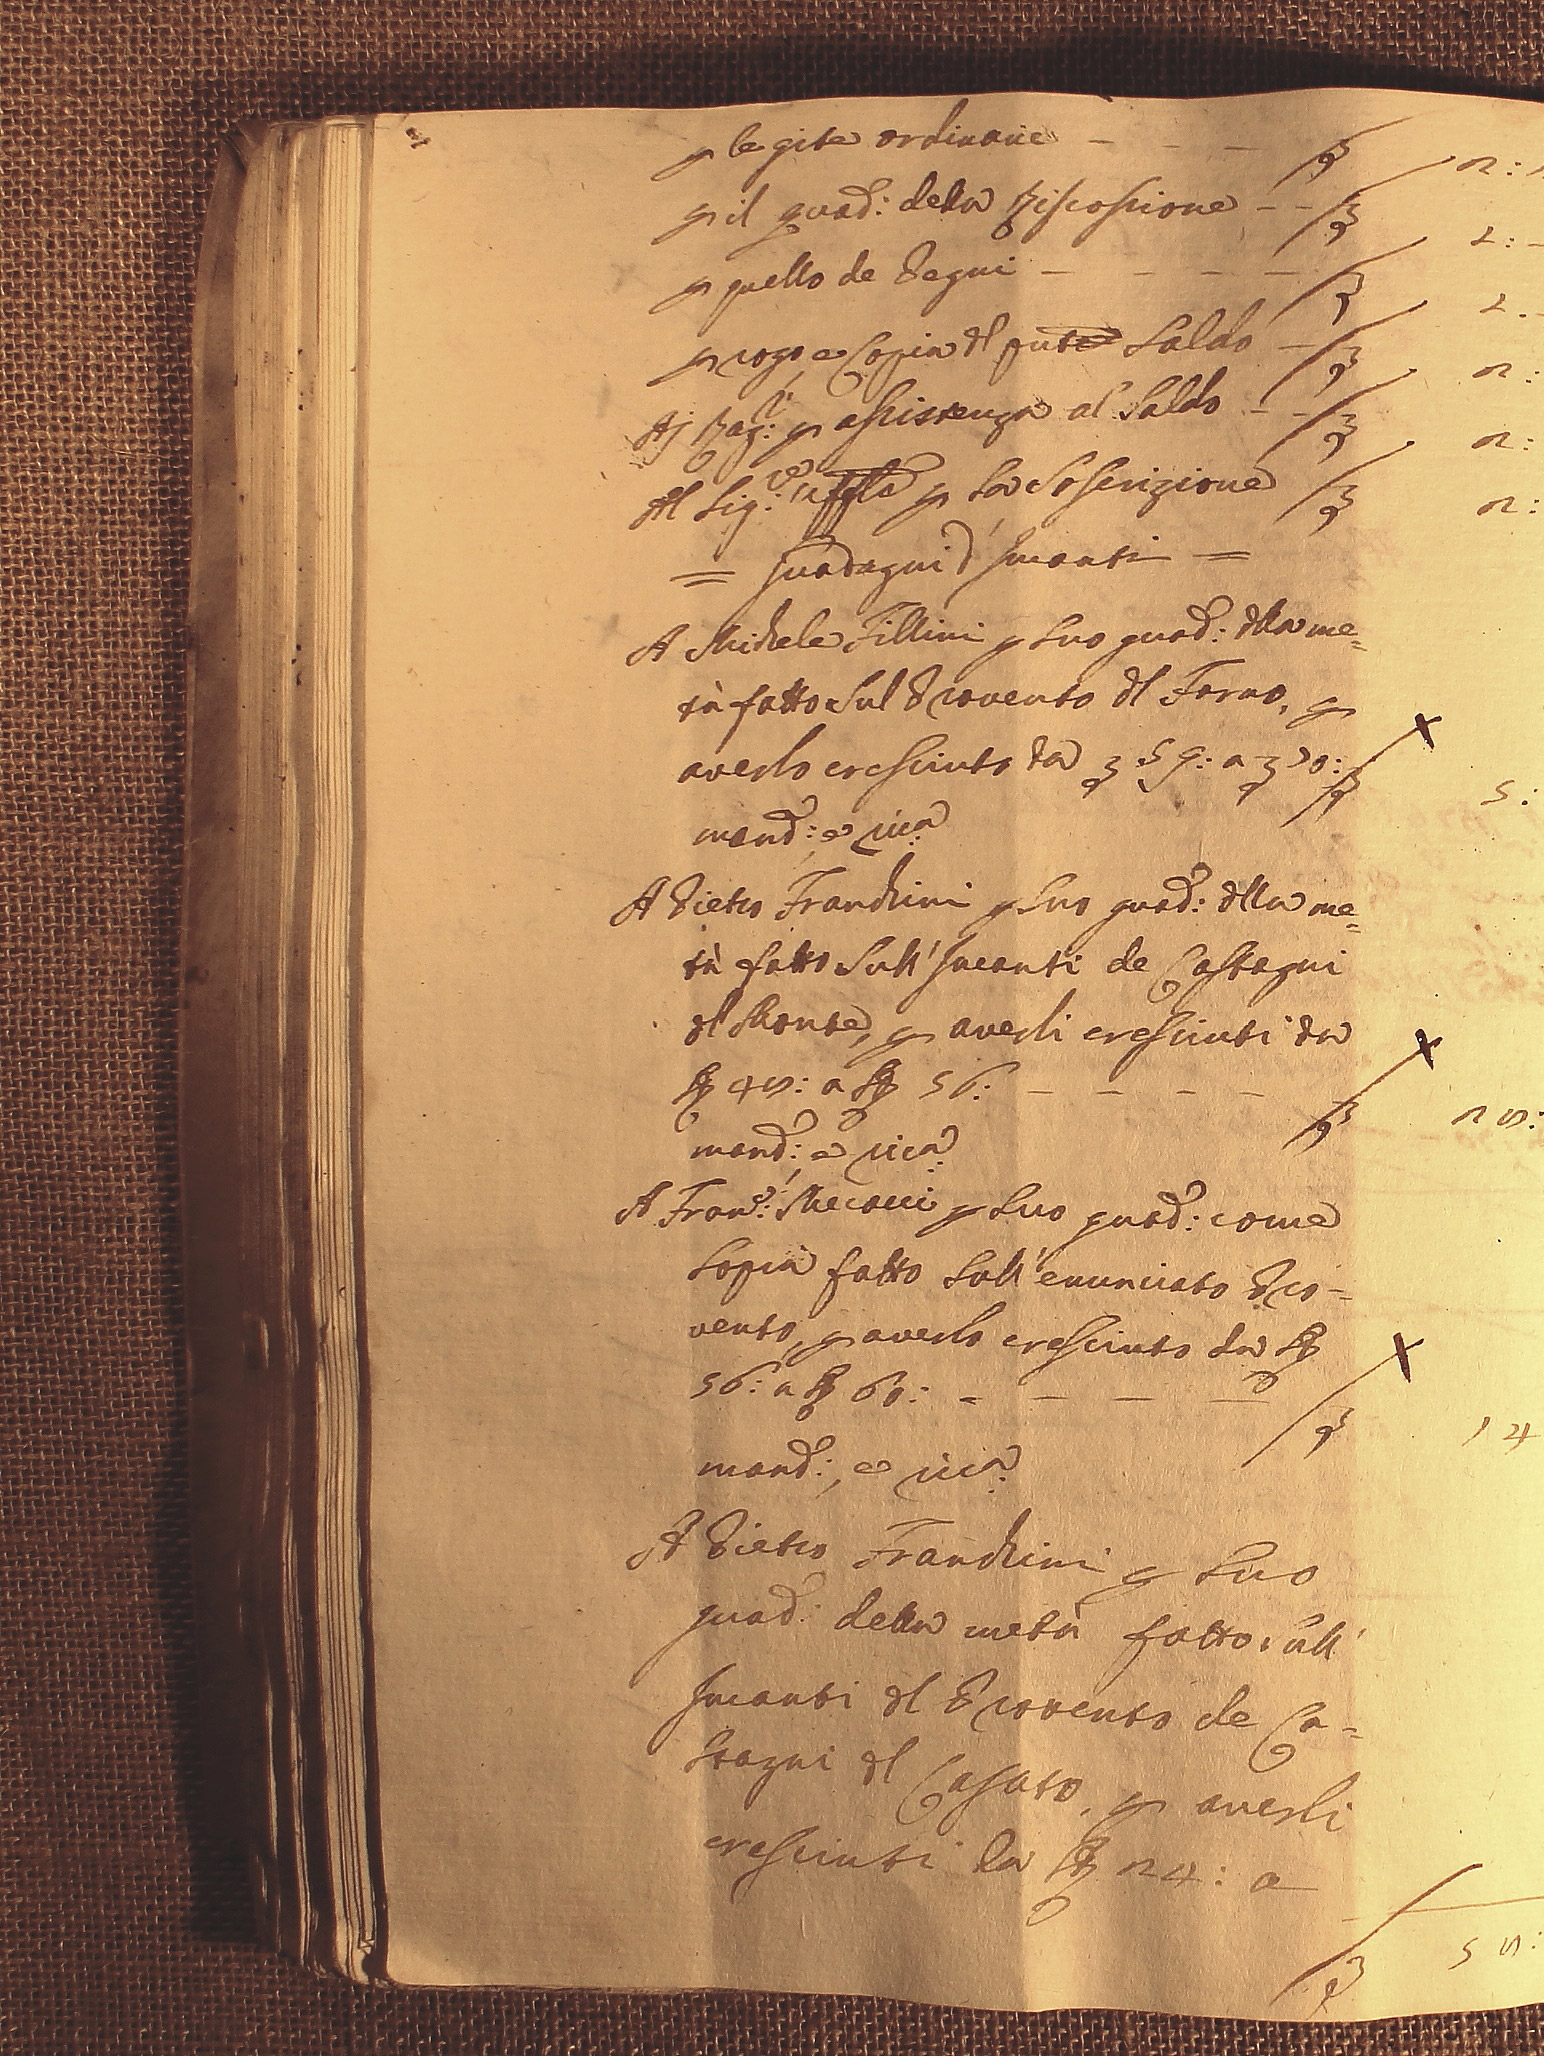 p le gite ordinarie - - - 2:
p il guad: della Riscossione - - 2:
p quello de Pegni - - - - 2.
p rogo e Copia dl pnte Saldo - 2:
Aj Rag:i p assistenza al Saldo - - 2:
Al Sig:re p la Soscrizione 2:
= Guadagni d'Incanti =
A Michele Fillini p suo guad: dlla me=
tà fatto sul Provento dl Forno, p
averlo cresciuto da 59: a 70: 5:
mand: e ric.a
A Pietro Franchini p suo guad: dlla me=
tà fatto sull'Incanti de Castagni
dl Monte, p averli cresciuti da
48: a 56: - - - - 28:
mand: e ric.a
A Fran.co Mecacci p suo guad: come
sopra fatto sull'enunciato Pro-
vento, p averlo cresciuto da
56: a 60: - - - - 14
mand:, e ric.a
A Pietro Franchini p suo
guad: della metà fatto sull'
Incanti dl Provento de Ca-
stagni dl Casato, p averli
cresciuti da 24: a
58: